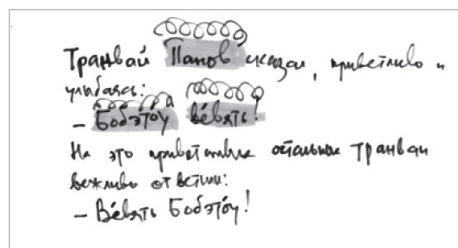 Транвай Панов сказал, приветливо и
улыбаясь:
– Бобэто́у ве́вять!
На это приветствие остальные транваи
вежливо ответили:
– Ве́вять Бобэто́у!